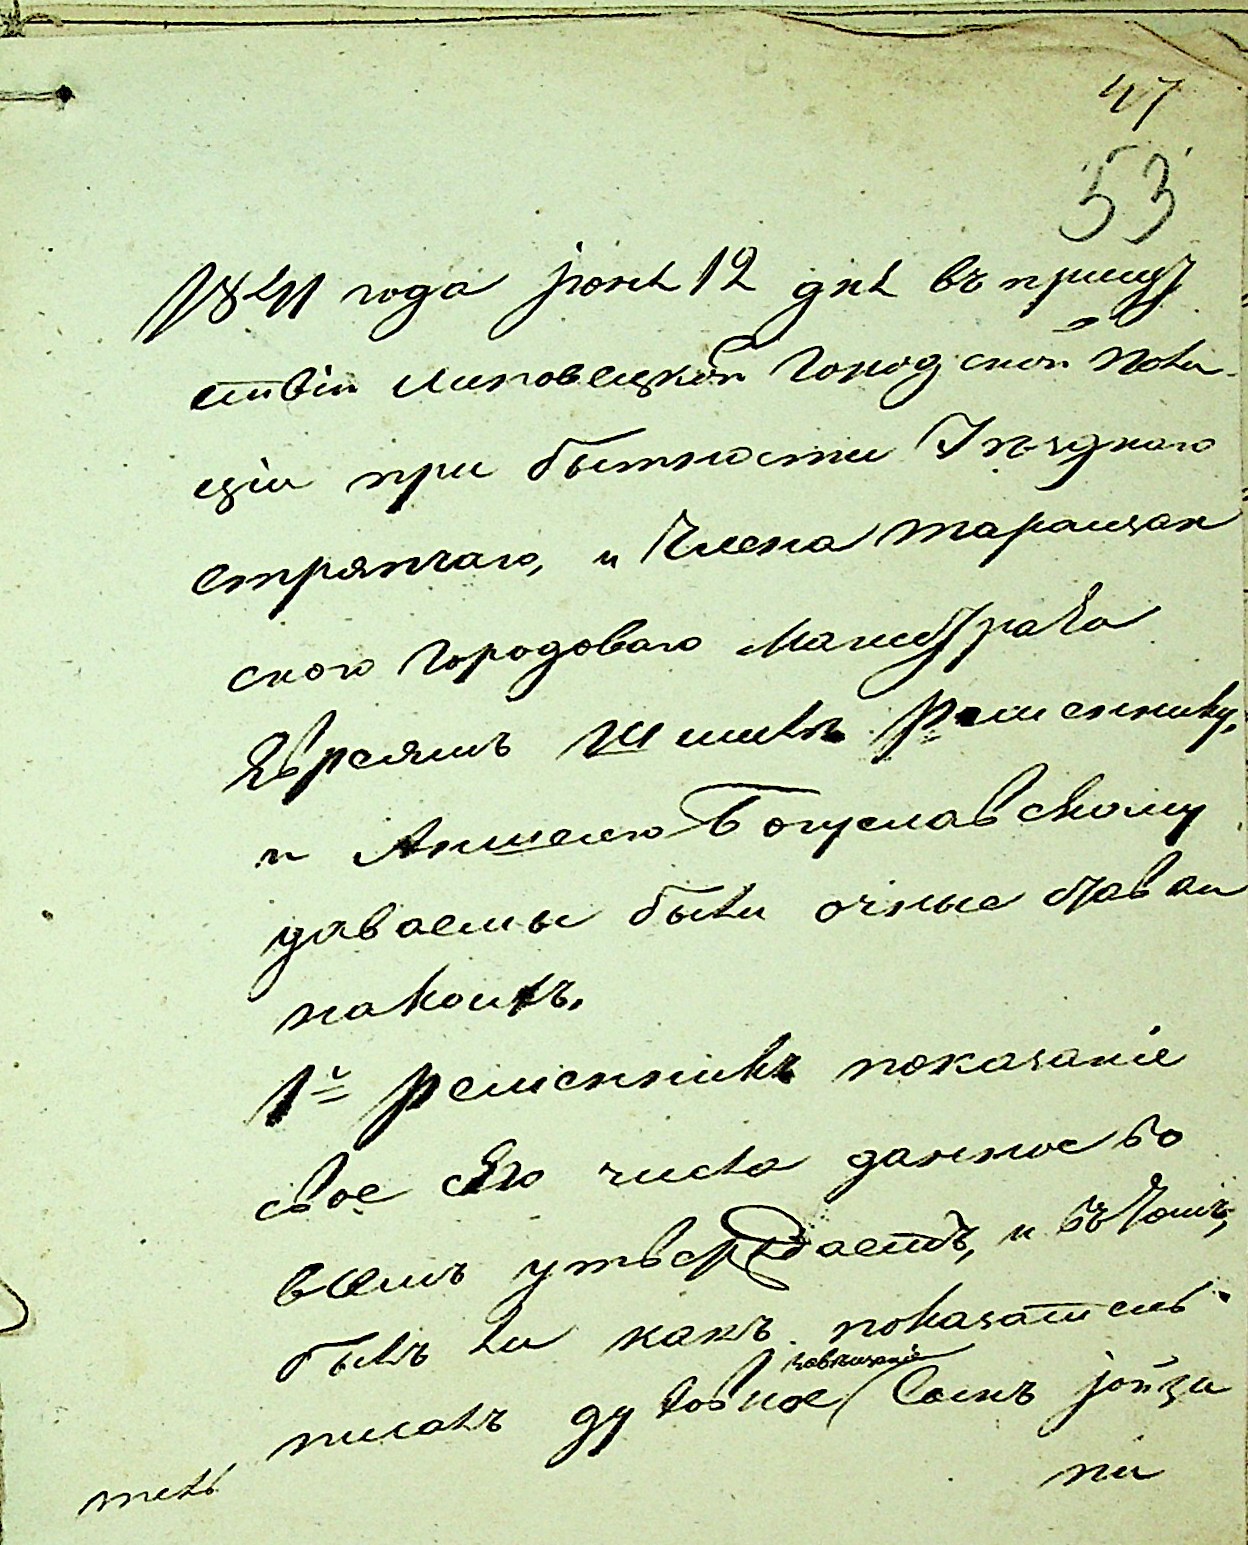 47
53
1841 года Іюнѧ 12 дня въ присут
ствіи Липовецкой Городской Поли-
ціи при бытности Уѣзднаго
стряпчаго, и Члена таращан
скаго Городоваго Магистрата
Евреямъ Ремѣннику,
и Аншелю Богуславскому
даваемы были очные ставки
на коихъ.
1й Ременникъ показаніе
свое сего числа данное во
всемъ утверждаетъ, и въ томъ,
былъ ли какъ показатель
завѣщаніе
писалъ духовное самъ
ни
тель